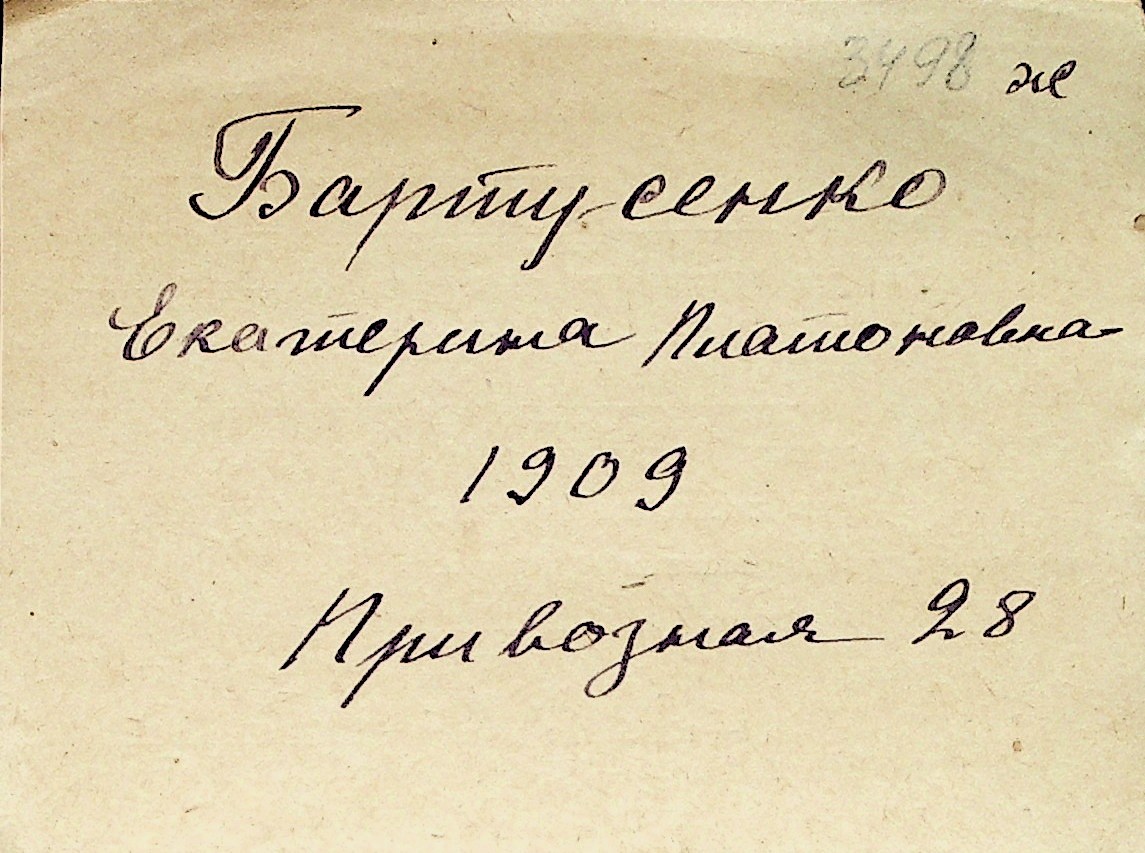 3498 ж
Бартусенко
Екатерина Платоновна
1909
Привозная 28